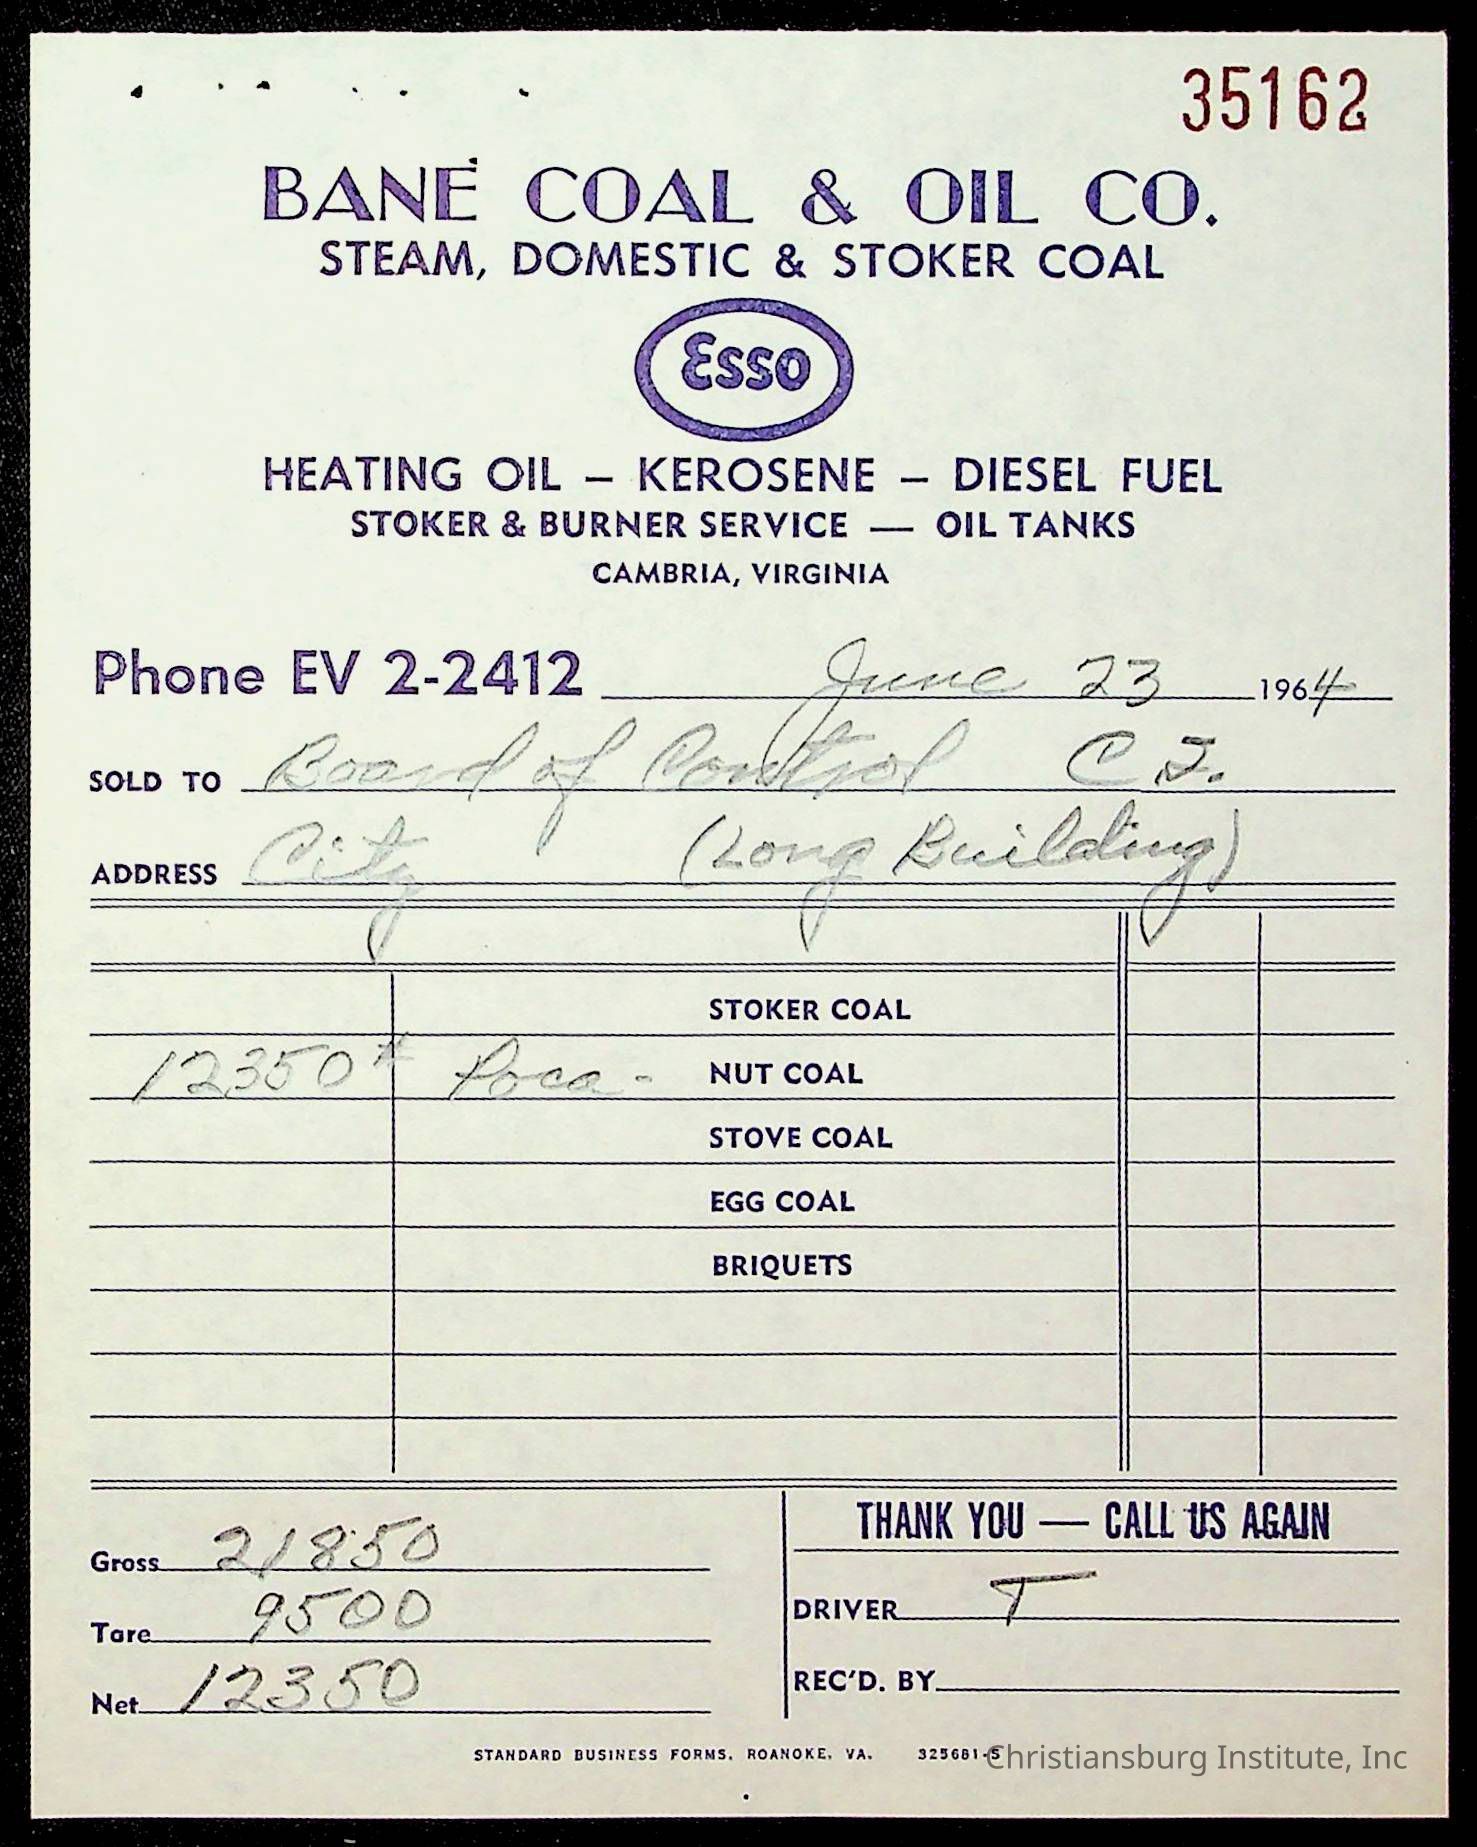 35162
BANE COAL & OIL CO.
STEAM, DOMESTIC & STOKER COAL
Esso
HEATING OIL – KEROSENE – DIESEL FUEL
STOKER & BURNER SERVICE — OIL TANKS
CAMBRIA, VIRGINIA
Phone EV 2-2412 June 23 1964
SOLD TO Board of Control C I.
ADDRESS City (Long Building)
STOKER COAL
12350# Poca - NUT COAL
STOVE COAL
EGG COAL
BRIQUETS
THANK YOU — CALL US AGAIN
Gross 21850
DRIVER T
Tare 9500
REC'D. BY
Net 12350
STANDARD BUSINESS FORMS, ROANOKE, VA. 325681-S
Christiansburg Institute, Inc